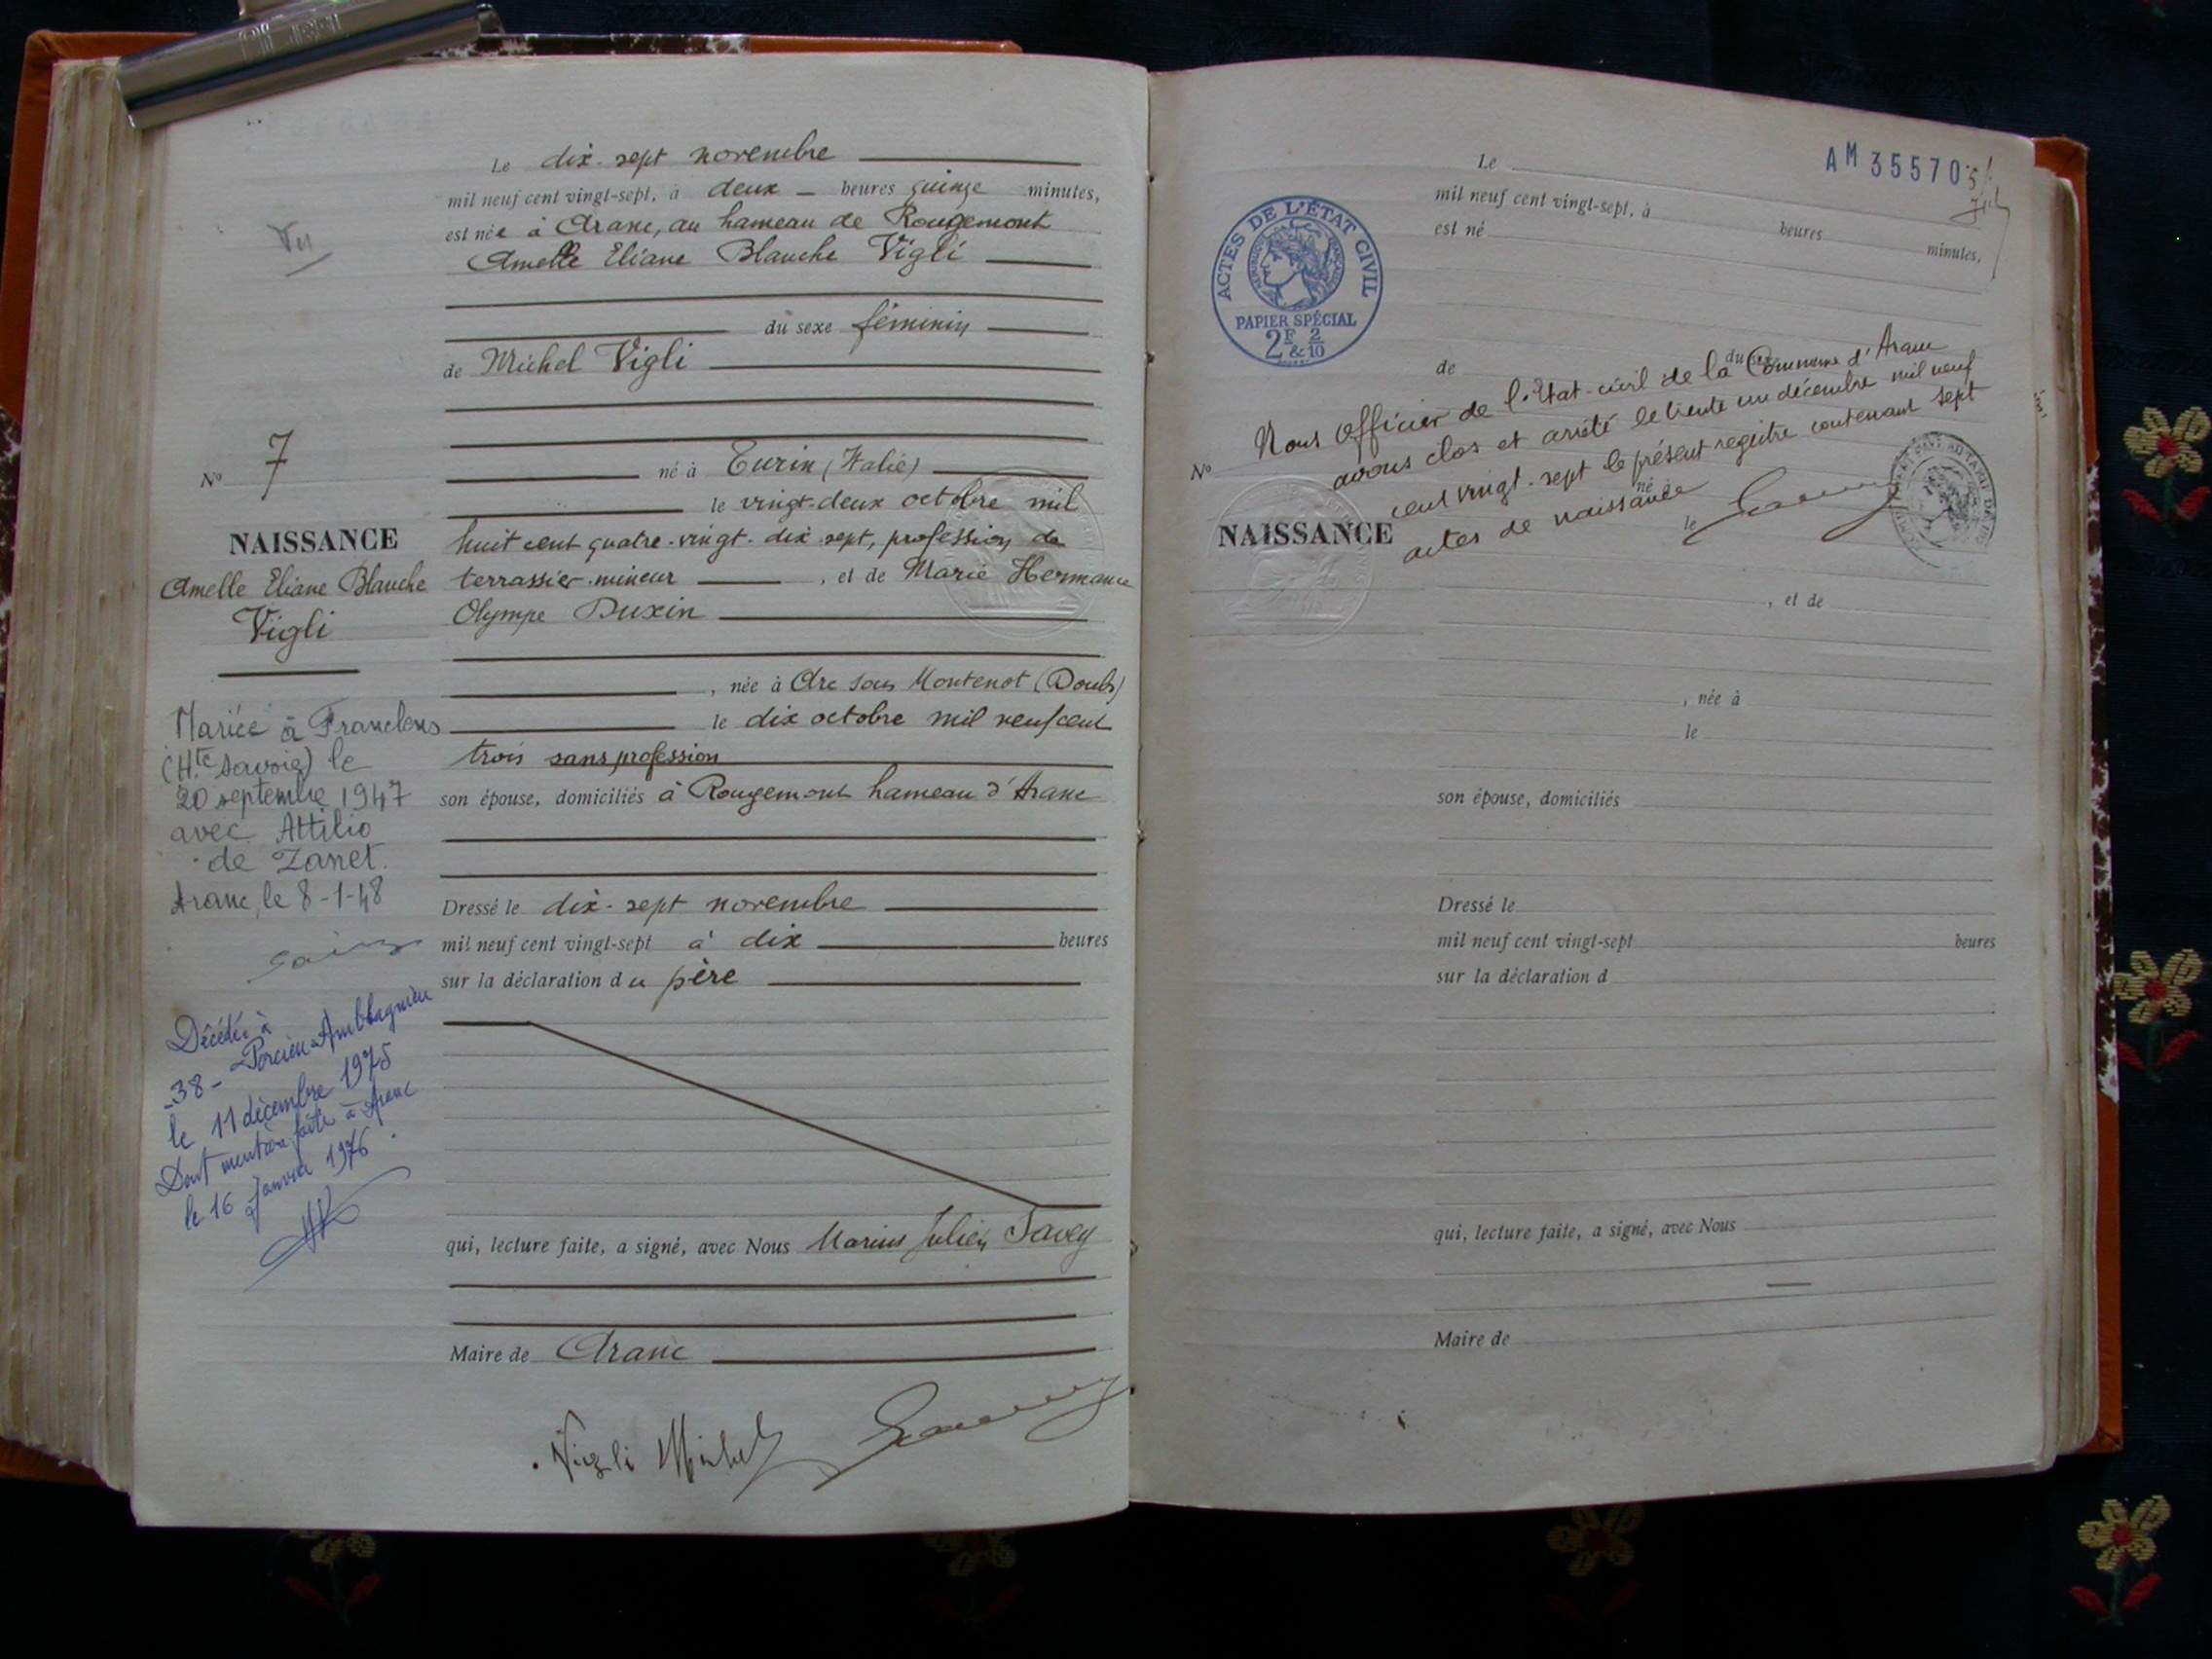 Le dix-sept novembre
mil neuf cent vingt-sept, à deux heures quinze minutes,
est née à Aranc, au hameau de Rougemont
Amelle Eliane Blanche Vigli
du sexe féminin
de Michel Vigli
né à Turin (Italie)
le vingt-deux octobre mil
huit cent quatre-vingt-dix-sept, profession de
terrassier-mineur, et de Marie Hermance
Olympe Duxin
, née à Arc sous Montenot (Doubs)
le dix octobre mil neuf cent
trois sans profession
son épouse, domiciliés à Rougemont hameau d'Aranc
Dressé le dix-sept novembre
mil neuf cent vingt-sept à dix heures
sur la déclaration du père
qui, lecture faite, a signé, avec Nous Marius Julien Savey
Maire de Aranc
Vigli Michel
Vu
No 7
NAISSANCE
Amelle Eliane Blanche
Vigli
Mariée à Franclens
(Hte Savoie) le
20 septembre 1947
avec Attilio
de Zanet.
Aranc, le 8-1-48
Décédée à
38 - Porcieu-Amblagnieu
le 11 décembre 1975
Dont mention faite à Aranc
le 16 Janvier 1976.
AM 35570
ACTES DE L'ÉTAT CIVIL
PAPIER SPÉCIAL
2F & 2/10
Le
mil neuf cent vingt-sept, à
est né heures
minutes,
du sexe
de
Nous officier de l'Etat-civil de la Commune d'Aranc
avons clos et arrêté le trente un décembre mil neuf
cent vingt-sept le présent registre contenant sept
actes de naissance
No
NAISSANCE
né à
le
, et de
, née à
le
son épouse, domiciliés
Dressé le
mil neuf cent vingt-sept heures
sur la déclaration d
qui, lecture faite, a signé, avec Nous
Maire de